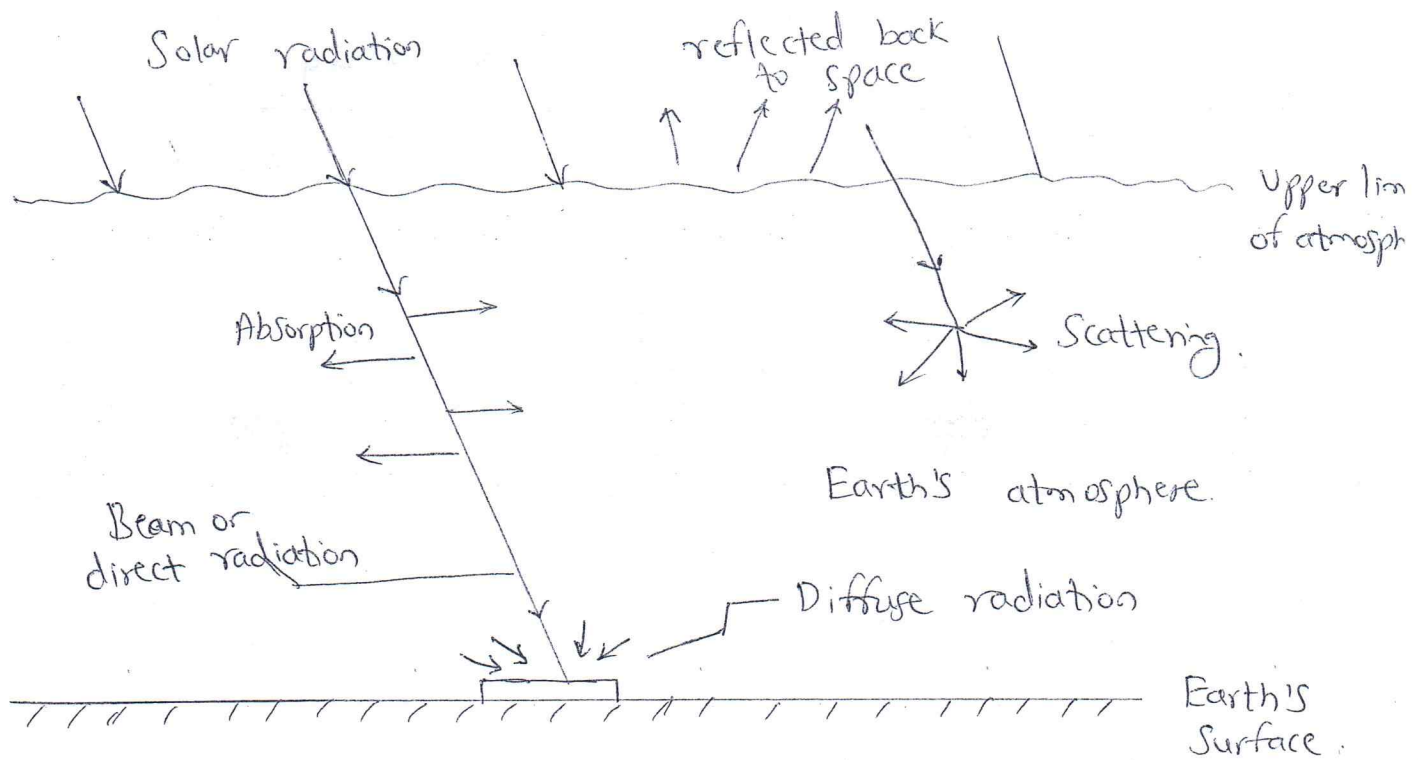 Solar radiation
reflected back
to space
Upper lim
of atmosph
Absorption
Scattering.
Earth's atmosphere.
Beam or
direct radiation
Diffuse radiation
Earth's
Surface.